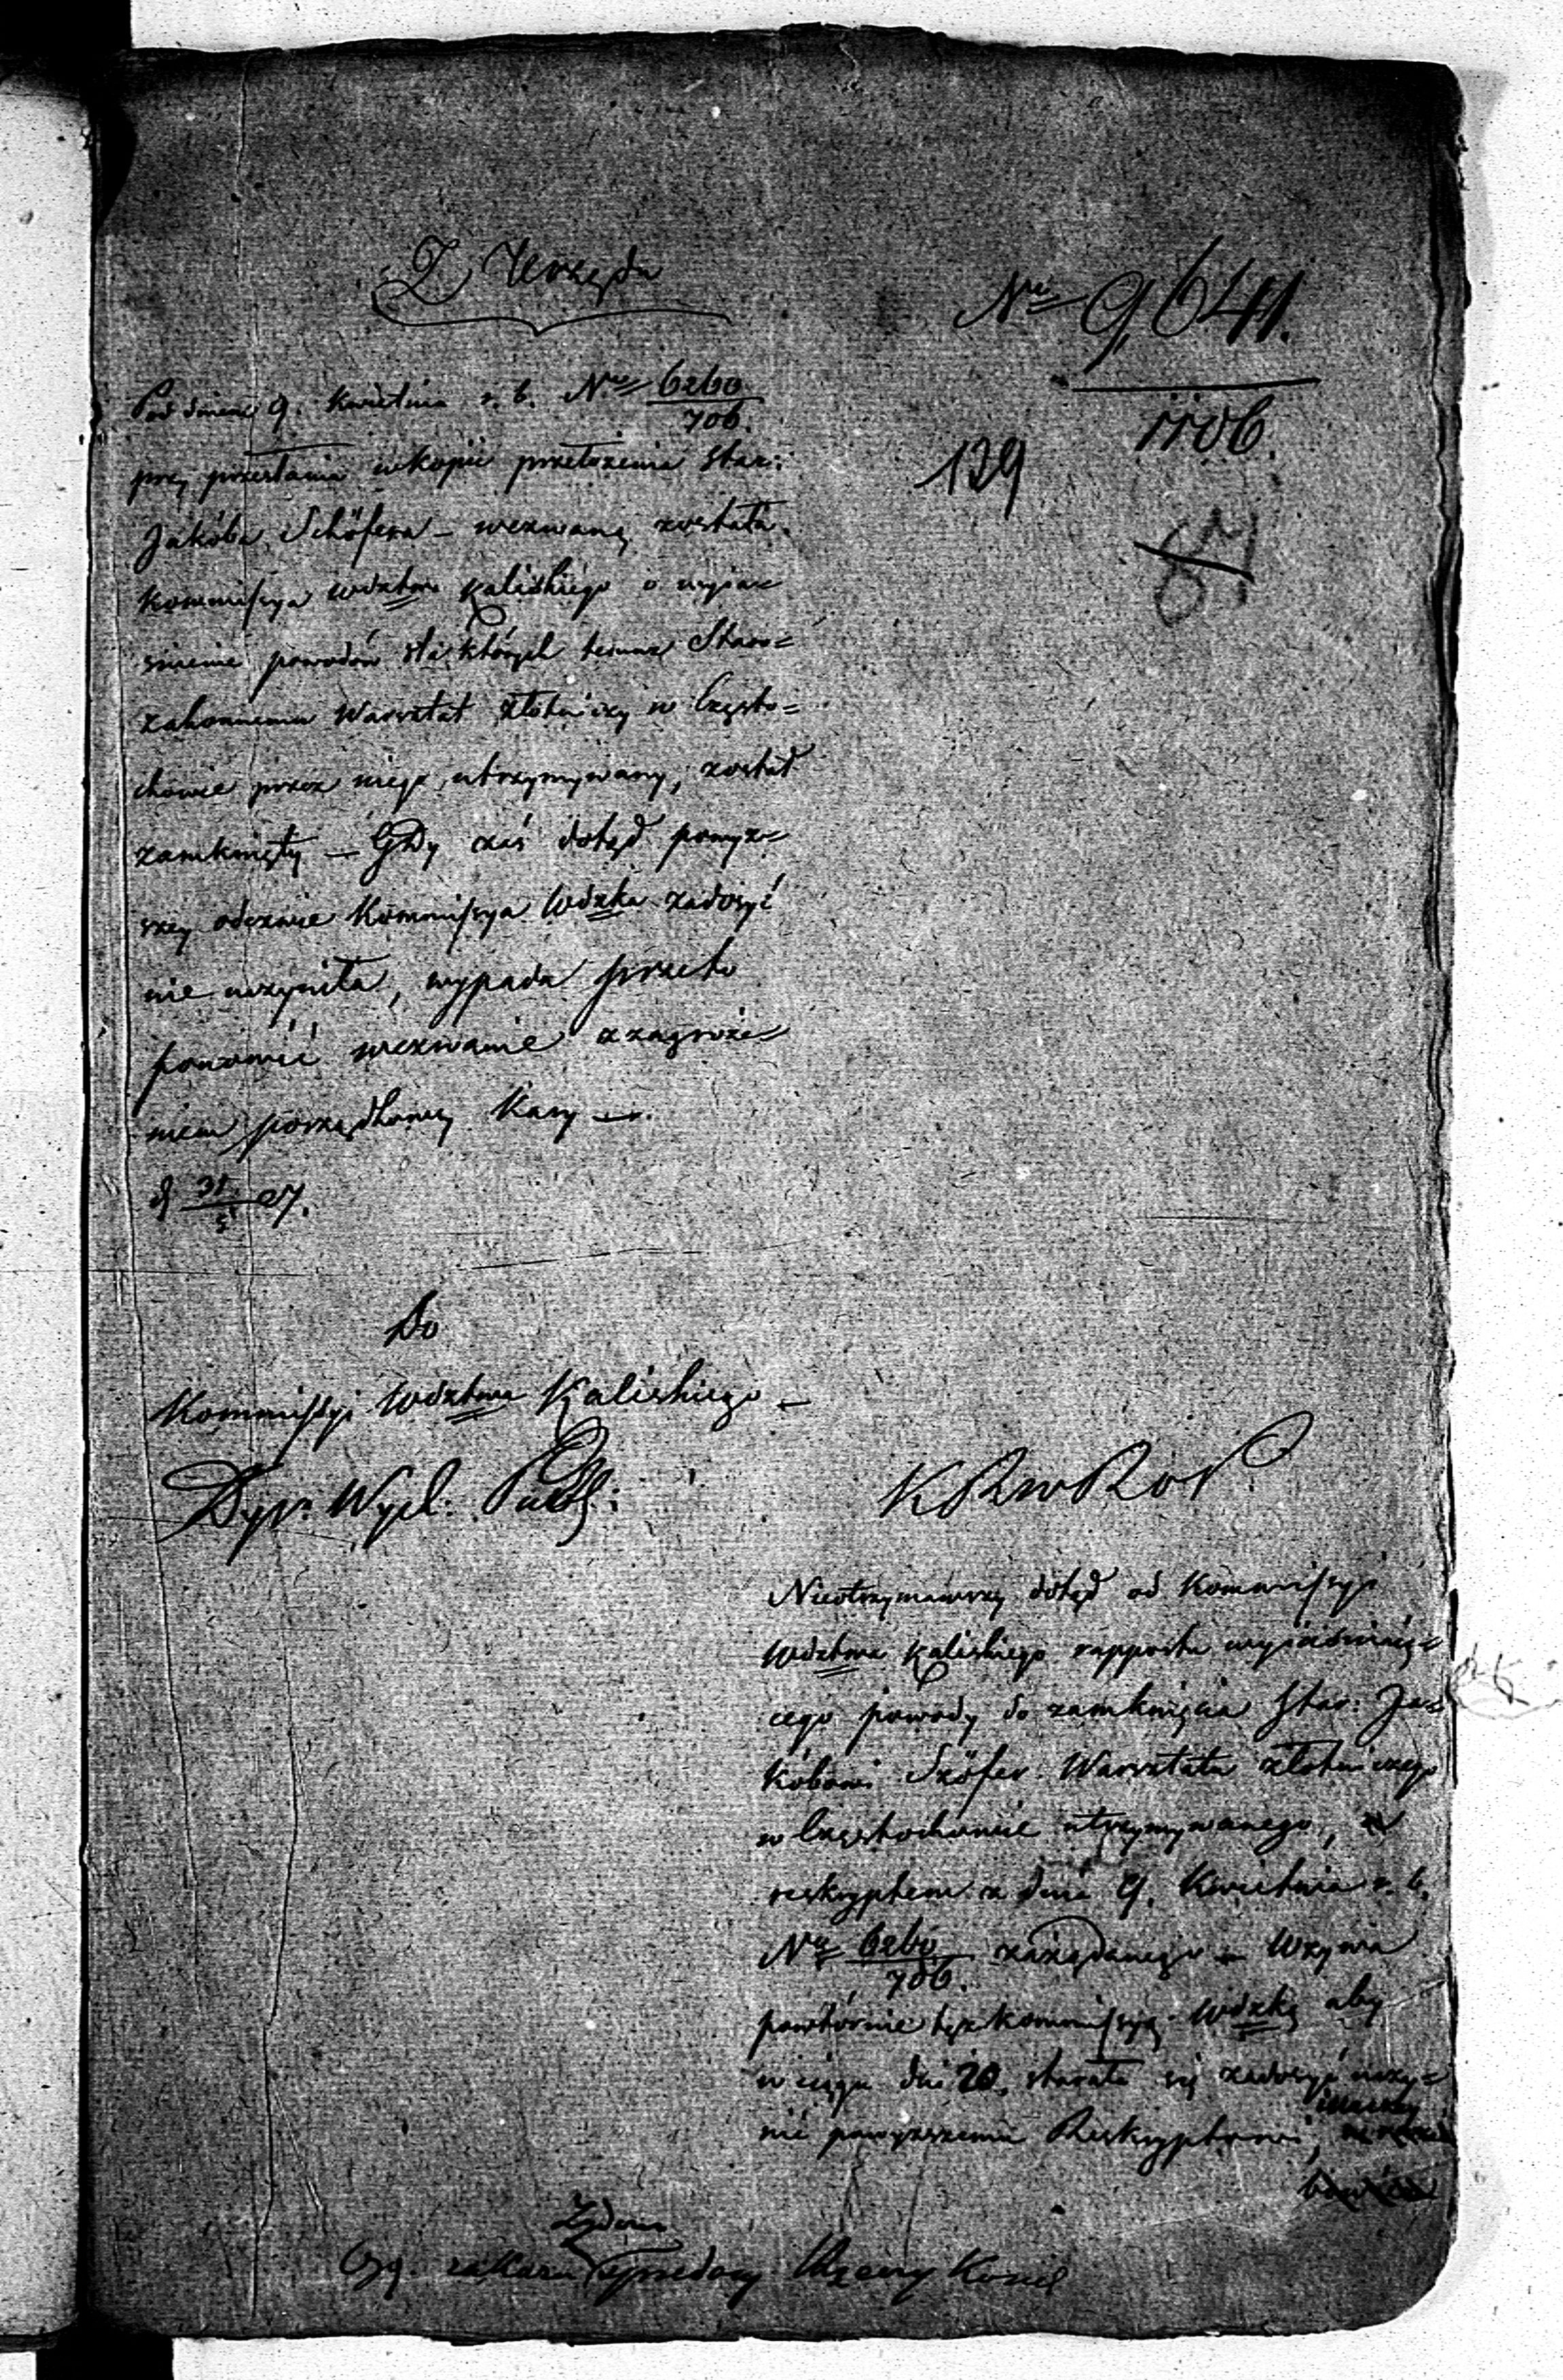 Z Urzędu
Nro 9,641.
1106.
129
Pod dniem 9. Kwietnia r. b. Nro 6260
706.
przy przesłaniu w kopii przełożenia Star:
Jakóba Schöfera — wezwaną została
Kommissya Wdztwa Kaliskiego o wyja=
śnienie powodów dla których temuż Staro=
zakonnemu Warsztat złotniczy w Często=
chowie przez niego utrzymywany, został
zamknięty — Gdy zaś dotąd powyż=
szey odezwie Kommissya Wdzka zadosyć
nie uczyniła, wypada przeto
ponowić wezwanie z zagroże=
niem porządkowey kary —
d 31/5 27.
Do
Kommissyi Wdztwa Kaliskiego —
Dyr: Wyd. Policyi:
KRwRoP
Nieotrzymawszy dotąd od Kommissyi
Wdztwa Kaliskiego rapportu wyjaśniaią=
cego powody do zamknięcia Star: Ja=
kóbowi Szöfer Warsztatu złotniczego
w Częstochowie utrzymywanego,
reskryptem z dnia 9. Kwietnia r. b.
Nro 6260 zażądanego — Wzywa
706.
powtórnie też Kommissyą Wdzką aby
w ciągu dni 20. starała się zadosyć uczy=
nić powyższemu Reskryptowi, inaczey
Żydom
zakazu sprzedaży